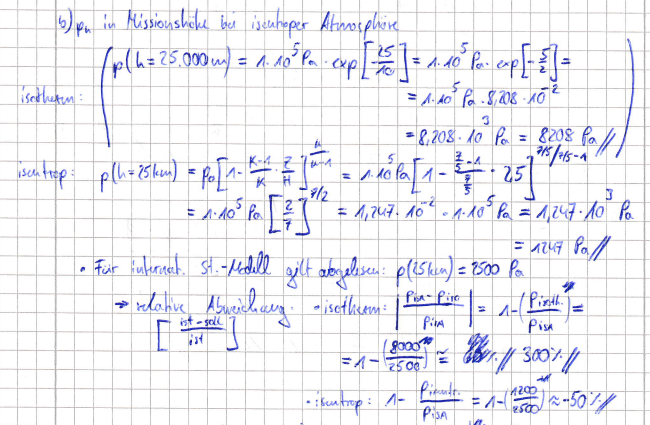 b) pₕ in Missionshöhe bei isentroper Atmosphäre
isotherm: ( p(h=25.000m) = 1·10⁵ Pa · exp[-25/10] = 1·10⁵ Pa · exp[-5/2] =
= 1·10⁵ Pa · 8,208·10⁻²
= 8,208·10³ Pa = 8208 Pa // )
isentrop: p(h=25km) = p₀[1 - κ-1/κ · z/H]^κ/κ-1 = 1·10⁵ Pa[1 - 7/5-1 / 7/5 · 2,5]^7/5/7/5-1
= 1·10⁵ Pa [2/7]^7/2 = 1,247·10⁻² · 1·10⁵ Pa = 1,247·10³ Pa
= 1247 Pa //
• Für internat. St.-Modell gilt abgelesen: p(25km) = 2500 Pa
→ relative Abweichung: • isotherm: |pISA - piso / pISA| = 1-(pisoth. / pISA) =
[ist-soll / ist]
= 1-(8000/2500) ≈ // 300% //
• isentrop: 1- pisentr. / pISA = 1-(1200/2500) ≈ -50% //